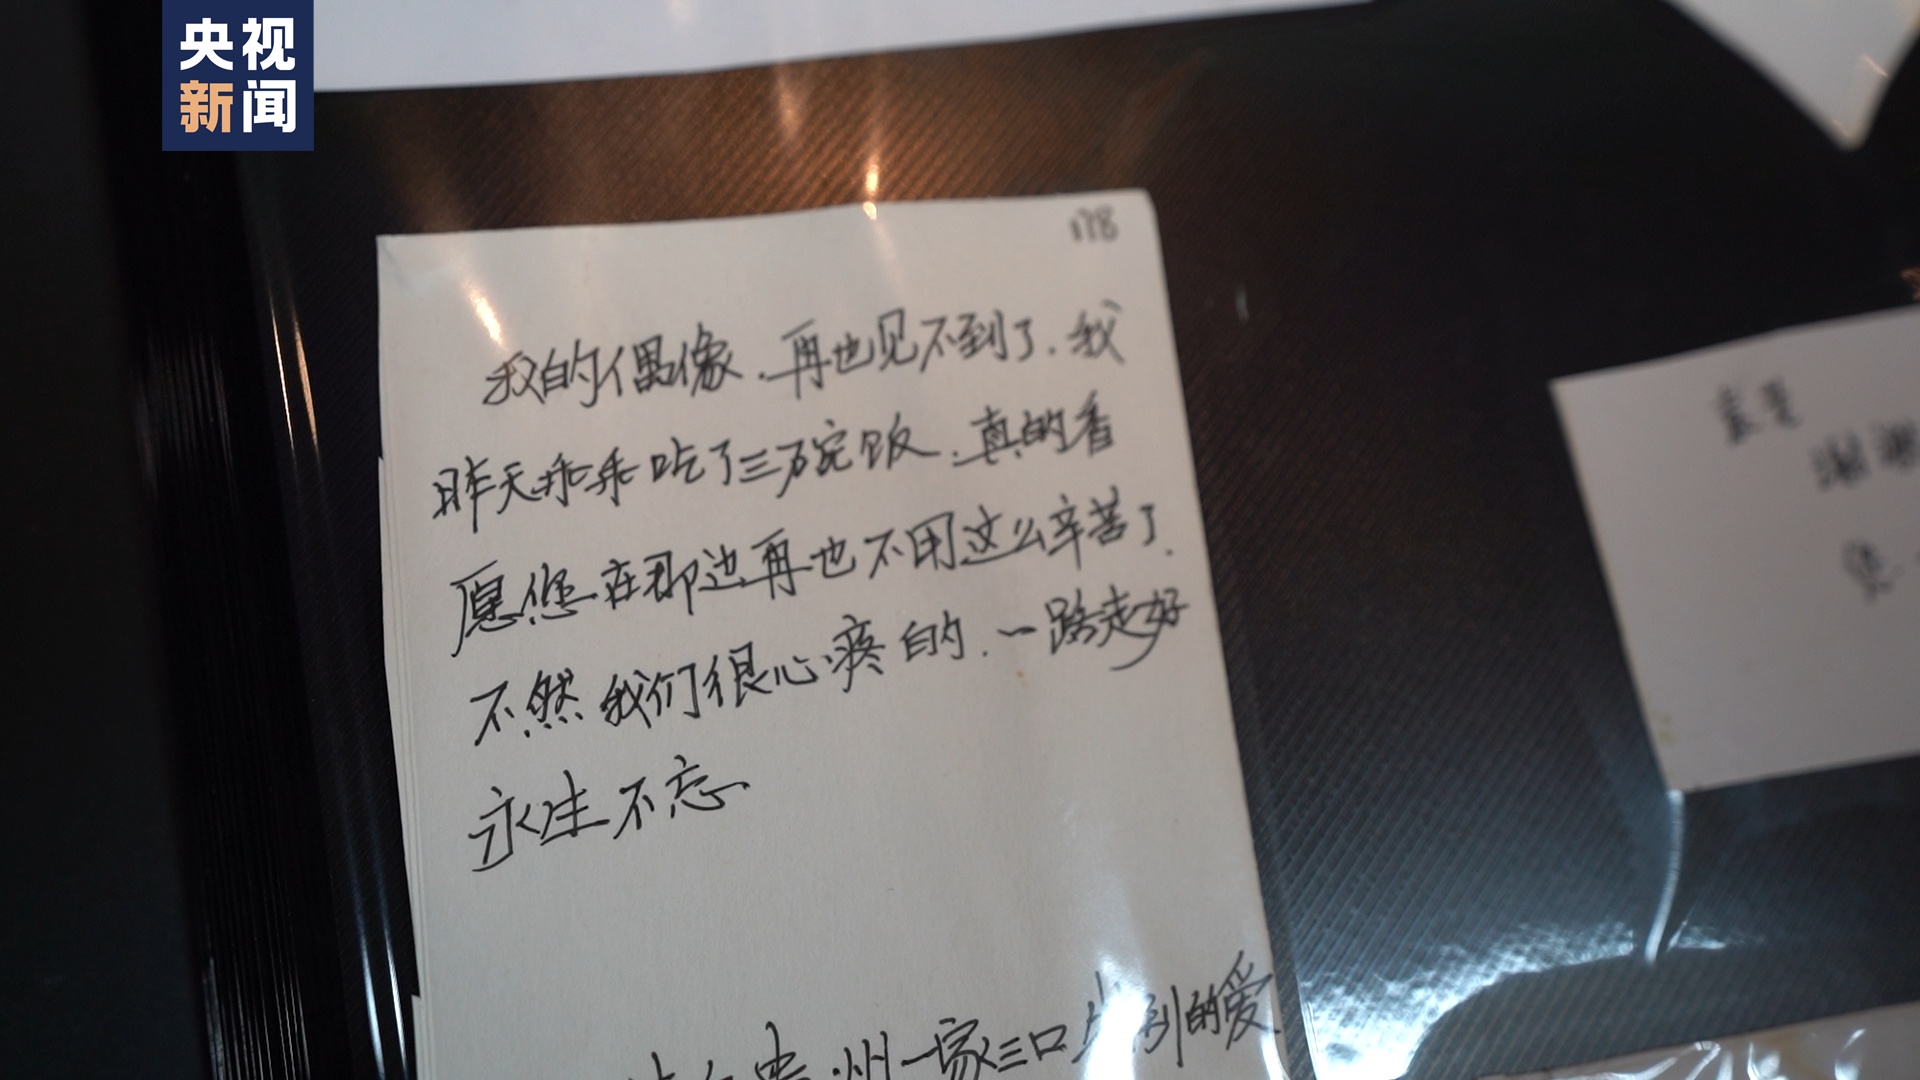 央视
新闻
178
我的偶像.再也见不到了.我
昨天乖乖吃了三碗饭.真的香
愿您在那边再也不用这么辛苦了.
不然我们很心疼的.一路走好
永生不忘
州一家三口 别的爱
谢谢
您